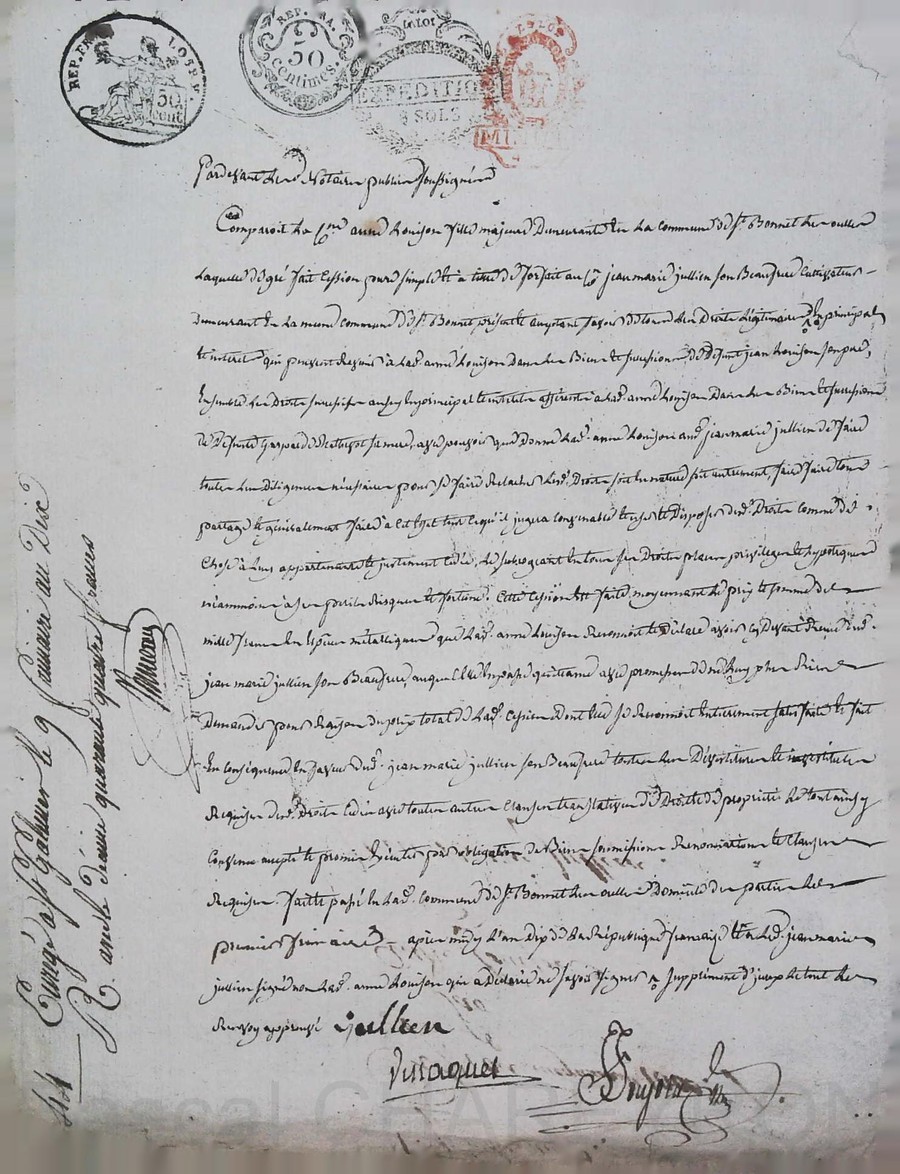 REP. FRA.
50
centimes.
50
cent
LA LOI
EXPEDITION
8 SOLS
Pardevant les Notaires publics soussignés
Comparoit la Cne anne Louison fille majeure Demeurante En La commune De St Bonnet les oulles
Laquelle De gré fait Cession pure simple et à titre De forfait au Cn jean marie jullien son Beaufrere Cultivateur
Demeurant En La meme commune De St Bonnet présent acceptant savoir De tous les Droits Légitimaires En principal
et interets qui peuvent Revenir à Lade anne Louison Dans les Biens et succession De Défunt jean Louison son pere,
Ensemble les Droits successifs aussy En principal et interets afférents à Lade anne Louison Dans les Biens et succession
De Défunte sa mere, avec pouvoir que Donne Lade anne Louison aud. jean marie jullien De faire
toutes Les Diligences nécessaires pour se faire Relacher Lesd. Droits soit En nature soit autrement, faire faire tous
partages et généralement faire à cet Egard tout ce qu'il jugera convenable et user et Disposer desd. Droits comme De
Chose à Lui appartenante et justement Cédée, Le subrogeant En tous ses Droits places privileges et hypotheques
néammoins à ses perils Risques et fortunes. Cette Cession Est faite moyennant Le prix et somme De
mille francs En Especes métalliques que Lade anne Louison Reconnoit et Déclare avoir Cy Devant Reçue Dud.
jean marie jullien son Beaufrere, auquel Elle En passe quittance avec promesse De ne Luy plus Rien
Demander pour Raison Du prix total De Lade Cession Dont Elle se Reconnoit Entierement satisfaite et fait
En Conséquence En faveur Dud. jean marie jullien son Beaufrere toutes Les Dévestitures et investitures
Requises Desd. Droits Cédés avec toutes autres Clauses translatives De Droits De propriété Le tout ainsy
Convenu accepté et promis Exécuter par obligation De Biens soumissions Renonciations et Clauses
Requises. fait et passé En Lade Commune De St Bonnet les oulles Domicile Des parties Le
premier frimaire apres midy L'an Dix De La République française Et a Led. jean marie
jullien signé non Lade anne Louison qui a Déclaré ne savoir signer
Renvoy approuvé jullien
Enregé à St Galmier le 9 frimaire an Dix
R. avec le Décime quarante quatre francs
44